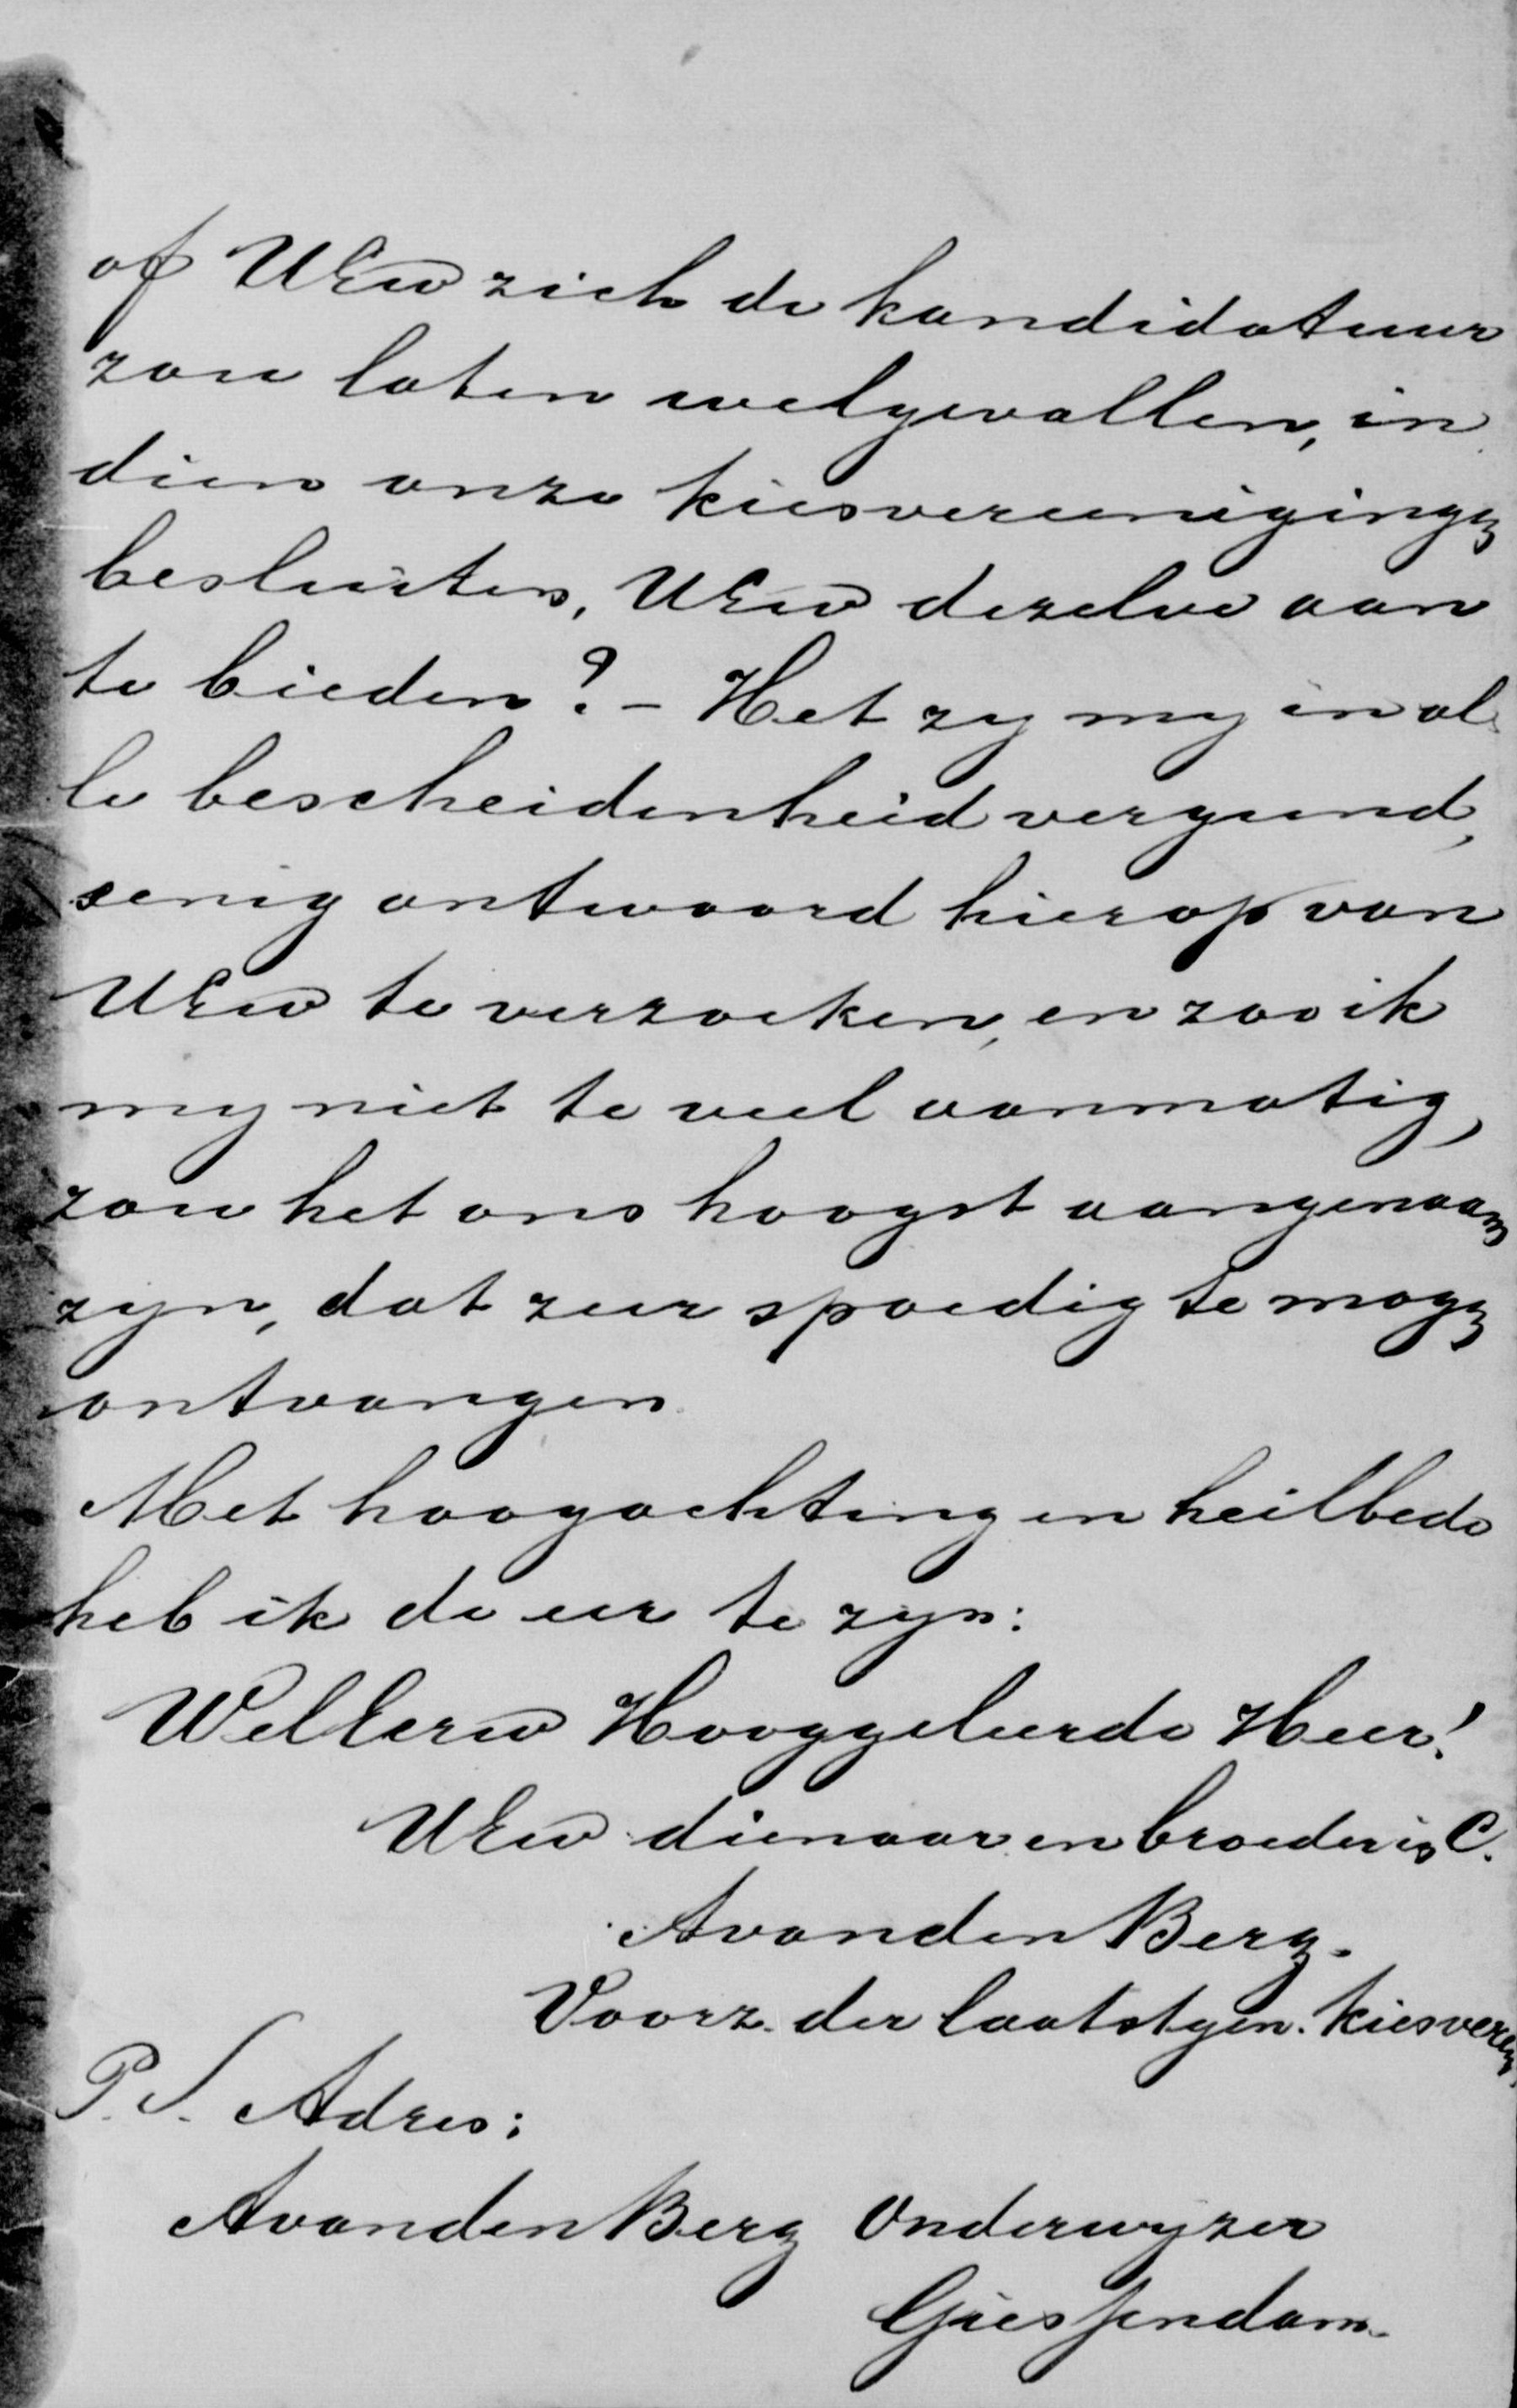 of UEw zich de kandidatuur
zou laten welgevallen, in
dien onze kiesvereenigingen
besluiten, UEw dezelve aan
te bieden? – Het zy my in al
le bescheidenheid vergund,
eenig antwoord hierop van
UEw te verzoeken, en zoo ik
my niet te veel aanmatig,
zou het ons hoogst aangenaam
zyn, dat zeer spoedig te mogen
ontvangen.
Met hoogachting en heilbede
heb ik de eer te zyn:
WelEerw Hooggeleerde Heer!
UEw dienaar en broeder in C.
AvandenBerg.
Voorz. der laatstgen. kiesvereen.
P.S. Adres:
AvandenBerg Onderwyzer
Giessendam.